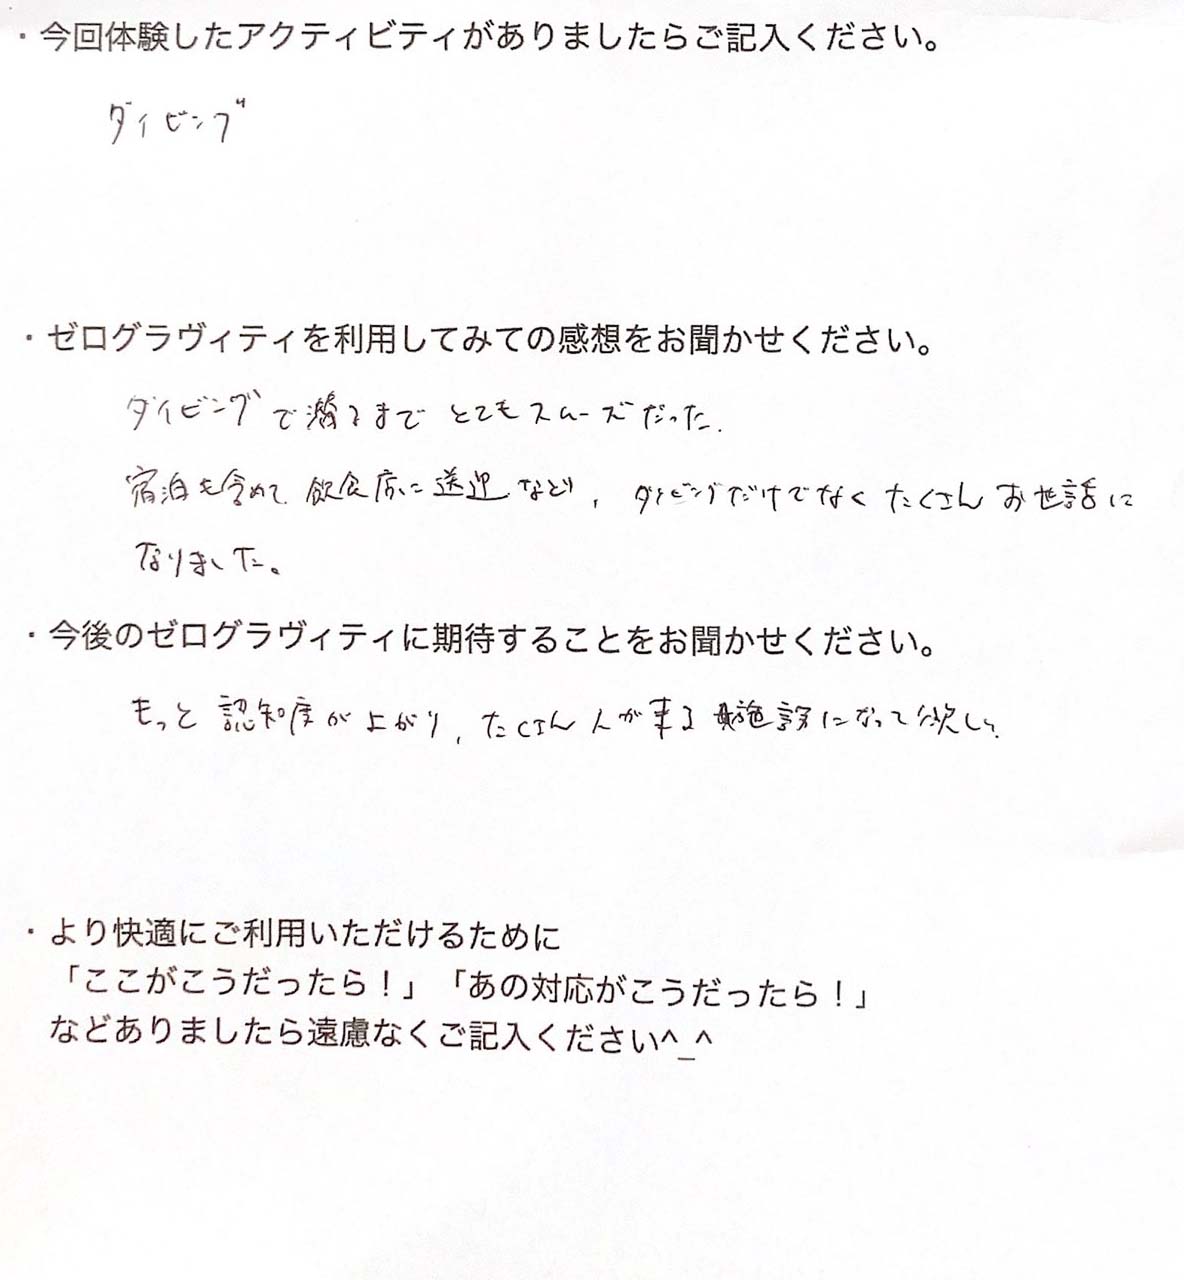 ・今回体験したアクティビティがありましたらご記入ください。
ダイビング
・ゼログラヴィティを利用してみての感想をお聞かせください。
ダイビングで潜るまでとてもスムーズだった.
宿泊も含めて、飲食店に送迎など、ダイビングだけでなくたくさんお世話に
なりました。
・今後のゼログラヴィティに期待することをお聞かせください。
もっと認知度が上がり、たくさん人が来る施設になって欲しい.
・より快適にご利用いただけるために
「ここがこうだったら！」「あの対応がこうだったら！」
などありましたら遠慮なくご記入ください^_^